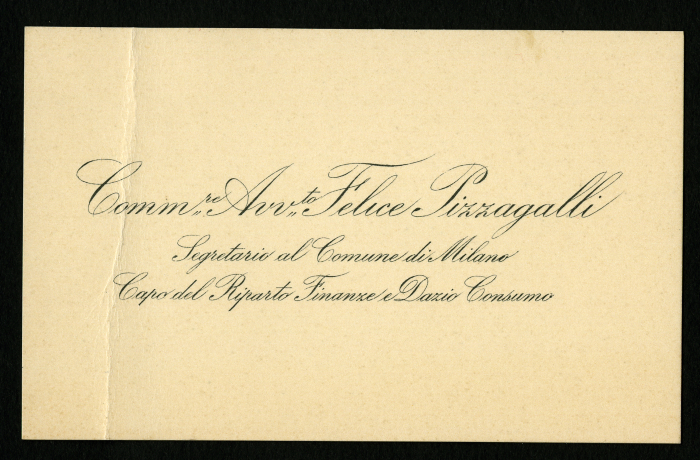 Comm.re Avv.to Felice Pizzagalli
Segretario al Comune di Milano
Capo del Riparto Finanze e Dazio Consumo